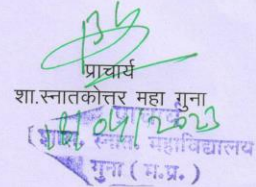 प्राचार्य
शा.स्नातकोत्तर महा गुना
प्राचार्य
04/2023
महाविद्यालय
गुना ( म.प्र. )